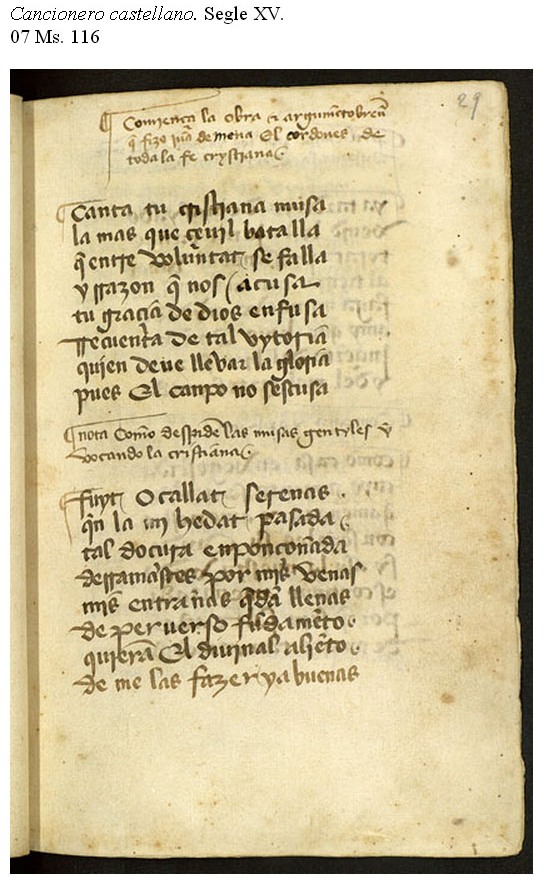 Cancionero castellano. Segle XV.
07 Ms. 116
29
¶ Comiença la obra & argumēto breuē
q̄ fizo juā de mena El cordoues de
toda la fe crystiana
Canta tu cristiana musa
la mas que çeuil batalla
q̄ entre voluntat se falla
y rrazon q̄ nos acusa
tu graciā de dios enfusa
rrecuenta de tal vytoriā
quien deue lleuar la gloriā
pues El canpo no sescusa
¶ nota Como despidē las musas gentyles y
vocando la cristiana
fuyt O callat serenas
q̄n la mj hedat pasada
tal doçura enponçoñada
derramastes por mis venas
mis entrañas q̄dā llenas
de peruerso fūdamēto
quierā El diuinal aliēto
de me las fazer ya buenas